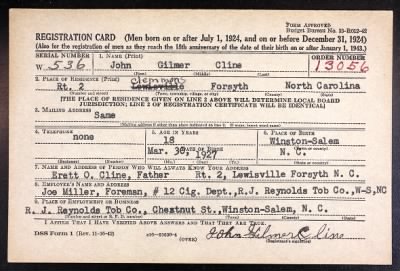 Form Approved
Budget Bureau No. 33-R012-42
REGISTRATION CARD (Men born on or after July 1, 1924, and on or before December 31, 1924)
(Also for the registration of men as they reach the 18th anniversary of the date of their birth on or after January 1, 1943.)
SERIAL NUMBER 1. NAME (Print) ORDER NUMBER
W 536 John Gilmer Cline 13056
(First) (Middle) (Last)
2. PLACE OF RESIDENCE (Print)
Clemmons
Rt. 2 Lewisville Forsyth North Carolina
(Number and street) (Town, township, village, or city) (County) (State)
[THE PLACE OF RESIDENCE GIVEN ON LINE 2 ABOVE WILL DETERMINE LOCAL BOARD
JURISDICTION; LINE 2 OF REGISTRATION CERTIFICATE WILL BE IDENTICAL]
3. MAILING ADDRESS
Same
[Mailing address if other than place indicated on line 2. If same, insert word same]
4. TELEPHONE 5. AGE IN YEARS 6. PLACE OF BIRTH
none 18 Winston-Salem
DATE OF BIRTH
Mar. 30, 1927 N. C.
(Exchange) (Number) (Mo.) (Day) (Yr.) (State or country)
7. NAME AND ADDRESS OF PERSON WHO WILL ALWAYS KNOW YOUR ADDRESS
Erett O. Cline, Father Rt. 2, Lewisville Forsyth N. C.
8. EMPLOYER'S NAME AND ADDRESS
Joe Miller, Foreman, # 12 Cig. Dept., R.J. Reynolds Tob Co., W-S, NC
9. PLACE OF EMPLOYMENT OR BUSINESS
R. J. Reynolds Tob Co., Cheztnut St., Winston-Salem, N. C.
(Number and street or R. F. D. number) (Town) (County) (State)
I AFFIRM THAT I HAVE VERIFIED ABOVE ANSWERS AND THAT THEY ARE TRUE.
DSS Form 1 (Rev. 11-16-42) (OVER) John Gilmer Cline
(Registrant's signature)